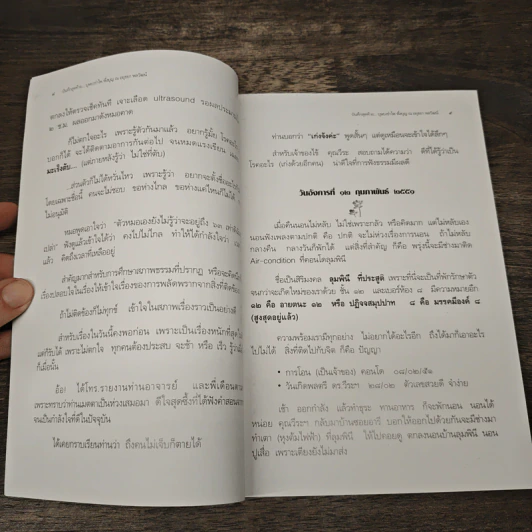 ๘ บันทึกสุดท้าย...
ตกลงให้ตรวจเช็คทันที เจาะเลือด ultrasound รอผลประมาณ
๒ ช.ม. ผลออกมาดังหมอคาด
ก็ไม่ตกใจอะไร เพราะรู้ตัวมาแล้ว อยากรู้มั้ย โรคอะไร
บอกก็ได้ จะได้ติดตามอาการกันต่อไป จนหมดแรงเขียน
มะเร็งตับ... (แต่ภายหลังรู้ว่า ไม่ใช่ตับ)
...ส่วนตัวก็ไม่ได้หวั่นไหว เพราะรู้ว่า อยากจะตั้งชื่ออะไรก็
โดยเฉพาะชื่อนี้ คนจะไม่ชอบ ขอห่างไกล ขอห่างแค่ไหนก็ไม่ได้
ไม่อนุมัติ
หมอพูดเอาใจว่า "ตัวหมอเองยังไม่รู้ว่าจะอยู่ถึง ๖๓ เท่า
เปล่า" ฟังดูแล้วเข้าใจได้ว่า คงไปไม่ไกล ทำให้ได้กำลังใจว่า
แล้ว คิดถึงเวลาที่เหลืออยู่
สำคัญมากสำหรับการศึกษาสภาพธรรมที่ปรากฏ หรือจะคิดนึก
เรื่องปลอบใจในเรื่องให้เข้าใจเรื่องของการพลัดพรากจากสิ่งที่ติดข้อง
ถ้าไม่ติดข้องก็ไม่ทุกข์ เข้าใจในสภาพเรื่องราวเป็นอย่างดี
สำหรับเรื่องในวันนี้คงพอก่อน เพราะเป็นเรื่องหนักที่สุด
แต่ก็รับได้ เพราะไม่ตกใจ ทุกคนต้องประสบ จะช้า หรือ เร็ว รู้
ก็เมื่อนั้น
อ้อ! ได้โทร.รายงานท่านอาจารย์ และพี่เดือนฉาย
เพราะทราบว่าท่านเมตตาเป็นห่วงเสมอมา ดีใจสุดซึ้งที่ได้ฟังคำสอน
จนเป็นกำลังใจที่ดีในปัจจุบัน
ได้เคยกราบเรียนท่านว่า ถึงคนไม่เจ็บก็ตายได้
๙
ท่านบอกว่า "เก่งจังค่ะ" พูดสั้นๆ แต่ดูเหมือนจะเข้าใจได้ลึกๆ
สำหรับเจ้าของไข้ คุณวีระ สอบถามได้ความว่า ดีที่ได้รู้ว่าเป็น
โรคอะไร (เก่งด้วยอีกคน) น่าดีใจที่การฟังธรรมมีผลดี
วันอังคารที่ ๑๒ กุมภาพันธ์ ๒๕๕๑
เมื่อคืนนอนไม่หลับ ไม่ใช่เพราะกลัว หรือคิดมาก แต่ไม่หลับเอง
นอนฟังเพลงตามปกติ คือ ปกติ จะไม่ห่วงเรื่องการนอน ถ้าไม่หลับ
กลางคืน กลางวันก็พักได้ แต่สิ่งที่สำคัญ ก็คือ พรุ่งนี้จะมีช่างมาติด
Air-condition ที่คอนโดลุมพินี
ชื่อเป็นสิริมงคล ลุมพินี ที่ประสูติ เพราะที่นี่จะเป็นที่พักรักษาตัว
จนกว่าจะเกิดใหม่ของเราด้วย ชั้น ๑๒ และเบอร์ห้อง ๘ มีความหมายอีก
๑๒ คือ อายตนะ ๑๒ หรือ ปฏิจจสมุปปาท ๘ คือ มรรคมีองค์ ๘
(สูงสุดอยู่แล้ว)
ความพร้อมเรามีทุกอย่าง ไม่อยากได้อะไรอีก ถึงได้มาก็เอาอะไร
ไปไม่ได้ สิ่งที่ติดไปกับจิต ก็คือ ปัญญา
• การโอน (เป็นเจ้าของ) คอนโด ๐๘/๐๒/๕๑
• วันเกิดพลตรี ดร.วีระฯ ๒๘/๐๒ ตัวเลขสวยดี จำง่าย
เช้า ออกกำลัง แล้วทำธุระ ทานอาหาร ก็จะพักนอน นอนได้
หน่อย คุณวีระฯ กลับมาบ้านซอยอารี บอกให้ออกไปด้วยกันจะมีช่างมา
ทำเตา (หุงต้มไฟฟ้า) ที่ลุมพินี ให้ไปคอยดู ตกลงนอนบ้านลุมพินี นอน
ปูเสื่อ เพราะเตียงยังไม่มาส่ง